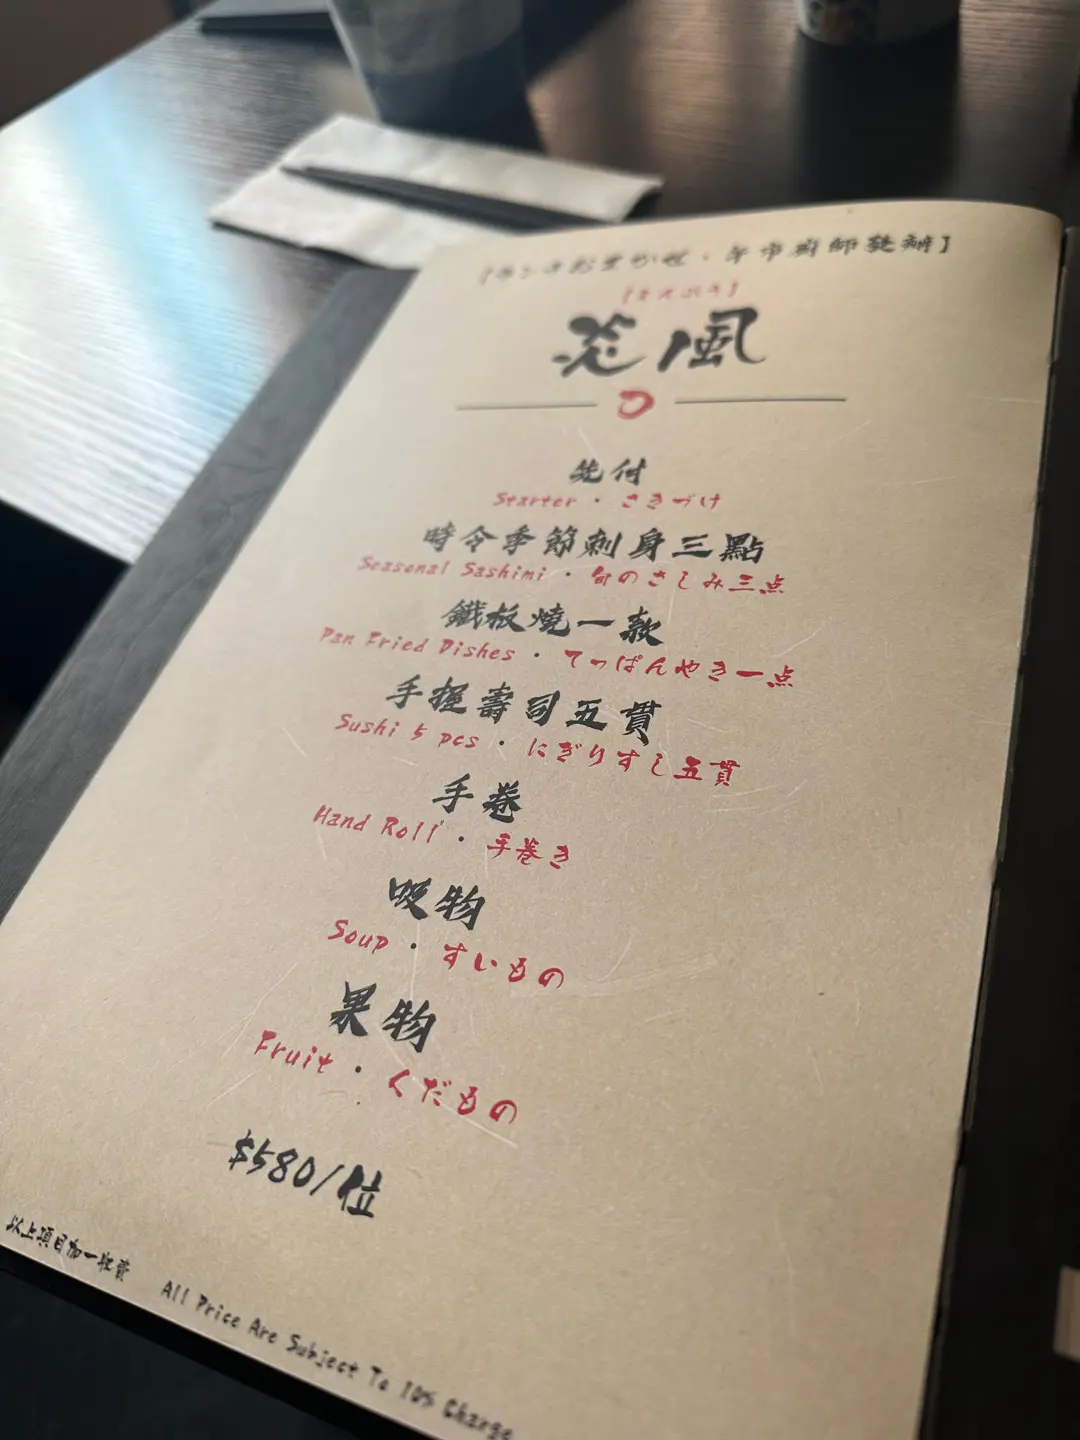 【ランチおまかせ・午市廚師發辦】
炎風
先付
Starter · さきづけ
時令季節刺身三點
Seasonal Sashimi · 旬のさしみ三点
鐵板燒一款
Pan Fried Dishes · てっぱんやき一点
手握壽司五貫
Sushi 5 pcs · にぎりすし五貫
手卷
Hand Roll · 手巻き
吸物
Soup · すいもの
果物
Fruit · くだもの
$580/位
以上項目加一收費 All Price Are Subject To 10% Charge